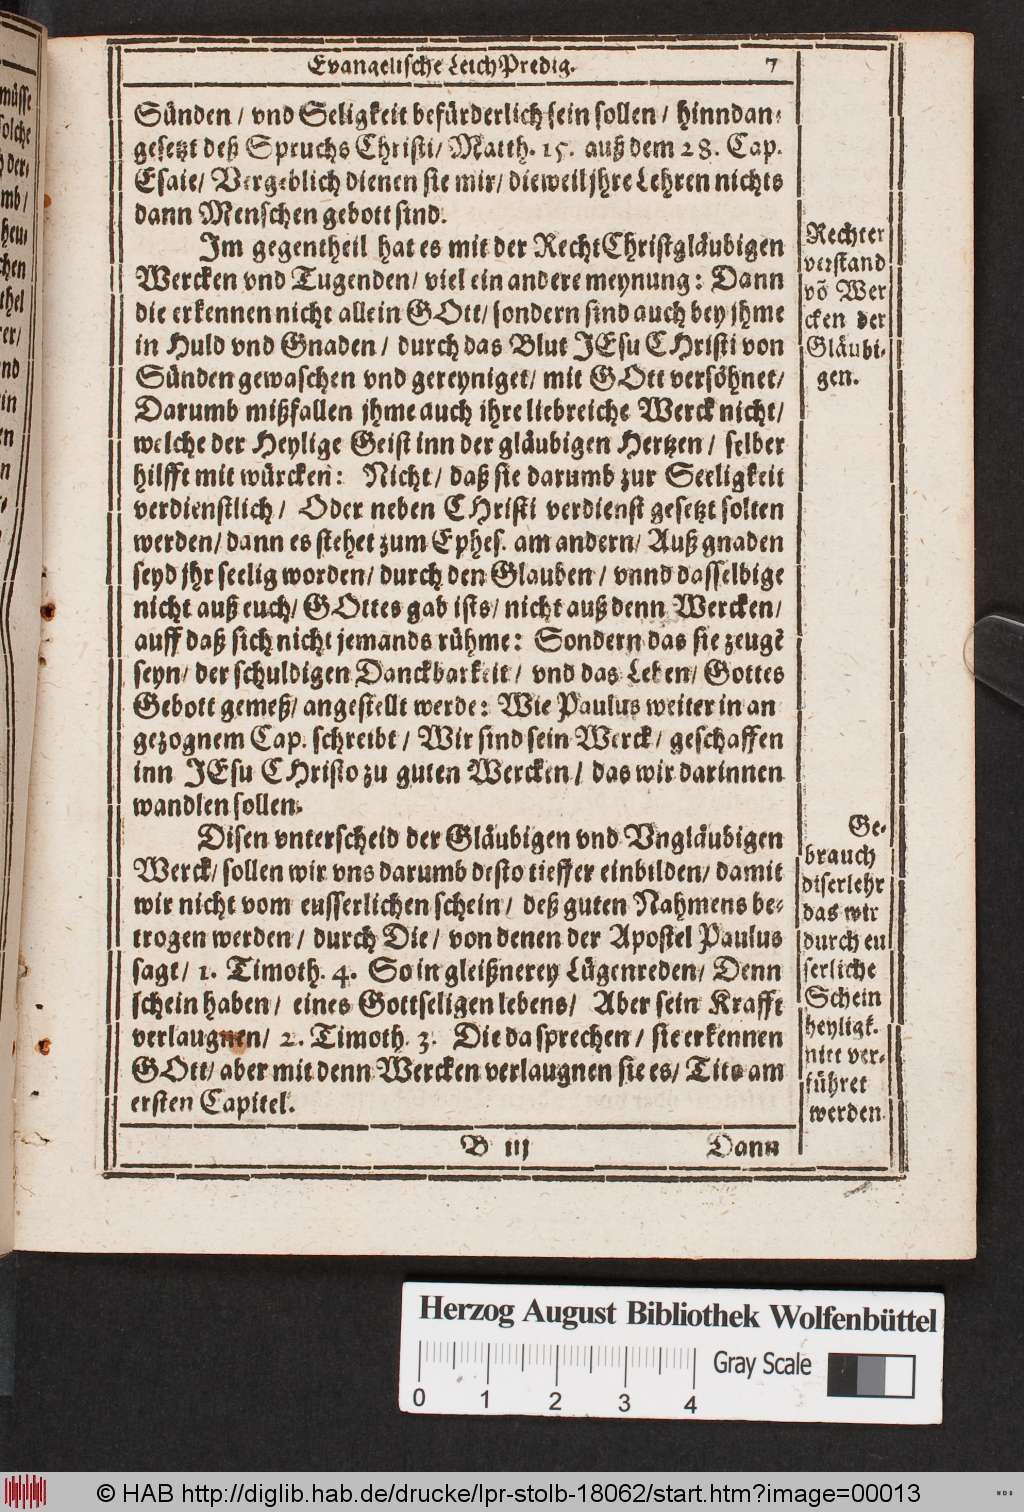 Evangelische LeichPredig. 7
Sünden / vnd Seligkeit befürderlich sein sollen / hinndan-
gesetzt deß Spruchs Christi / Matth. 15. auß dem 28. Cap.
Esaie / Vergeblich dienen sie mir / dieweil jhre Lehren nichts
dann Menschen gebott sind.
Im gegentheil hat es mit der RechtChristgläubigen
Wercken vnd Tugenden / viel ein andere meynung: Dann
die erkennen nicht allein GOtt / sondern sind auch bey jhme
in Huld vnd Gnaden / durch das Blut JEsu CHristi von
Sünden gewaschen vnd gereyniget / mit GOtt versöhnet /
Darumb mißfallen jhme auch ihre liebreiche Werck nicht /
welche der Heylige Geist inn der gläubigen Hertzen / selber
hilfft mit würcken: Nicht / daß sie darumb zur Seeligkeit
verdienstlich / Oder neben CHristi verdienst gesetzt solten
werden / dann es stehet zum Ephes. am andern / Auß gnaden
seyd jhr seelig worden / durch den Glauben / vnnd dasselbige
nicht auß euch / GOttes gab ists / nicht auß denn Wercken /
auff daß sich nicht jemands rühme: Sondern das sie zeugẽ
seyn / der schuldigen Danckbarkeit / vnd das Leben / Gottes
Gebott gemeß / angestellt werde: Wie Paulus weiter in an
gezognem Cap. schreibt / Wir sind sein Werck / geschaffen
inn JEsu CHristo zu guten Wercken / das wir darinnen
wandlen sollen.
Disen vnterscheid der Gläubigen vnd Vngläubigen
Werck / sollen wir vns darumb desto tieffer einbilden / damit
wir nicht vom eusserlichen schein / deß guten Nahmens be-
trogen werden / durch Die / von denen der Apostel Paulus
sagt / 1. Timoth. 4. So in gleißnerey Lügenreden / Denn
schein haben / eines Gottseligen lebens / Aber sein Krafft
verlaugnen / 2. Timoth. 3. Die da sprechen / sie erkennen
GOtt / aber mit denn Wercken verlaugnen sie es / Tito am
ersten Capitel.
B iij Dann
Rechter
verstand
võ Wer
cken der
Gläubi-
gen.
Ge-
brauch
diser lehr
das wir
durch eu
serliche
Schein
heyligk.
nitt ver-
führet
werden
müsse
solche
der,
mb /
heu-
chen
thel
rer /
nd
in
en
n
Herzog August Bibliothek Wolfenbüttel
Gray Scale
0 1 2 3 4
© HAB http://diglib.hab.de/drucke/lpr-stolb-18062/start.htm?image=00013